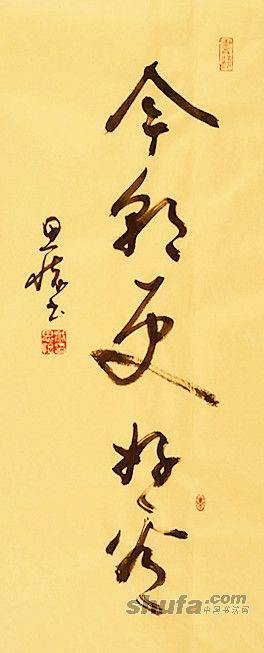 今朝更好看
shufa.com
中国书法网